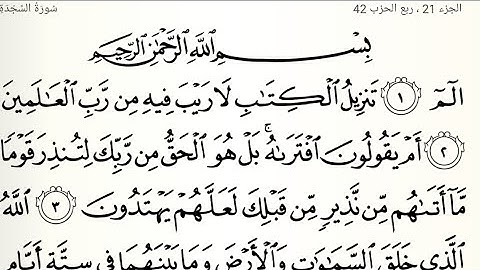 الجزء 21 ، ربع الحزب 42 سُورَةُ السَّجْدَةِ
بِسْمِ اللَّهِ الرَّحْمَٰنِ الرَّحِيمِ
الٓمٓ ١ تَنزِيلُ ٱلْكِتَٰبِ لَا رَيْبَ فِيهِ مِن رَّبِّ ٱلْعَٰلَمِينَ
٢ أَمْ يَقُولُونَ ٱفْتَرَىٰهُ ۚ بَلْ هُوَ ٱلْحَقُّ مِن رَّبِّكَ لِتُنذِرَ قَوْمًا
مَّآ أَتَىٰهُم مِّن نَّذِيرٍ مِّن قَبْلِكَ لَعَلَّهُمْ يَهْتَدُونَ ٣ ٱللَّهُ
ٱلَّذِى خَلَقَ ٱلسَّمَٰوَٰتِ وَٱلْأَرْضَ وَمَا بَيْنَهُمَا فِى سِتَّةِ أَيَّامٍ